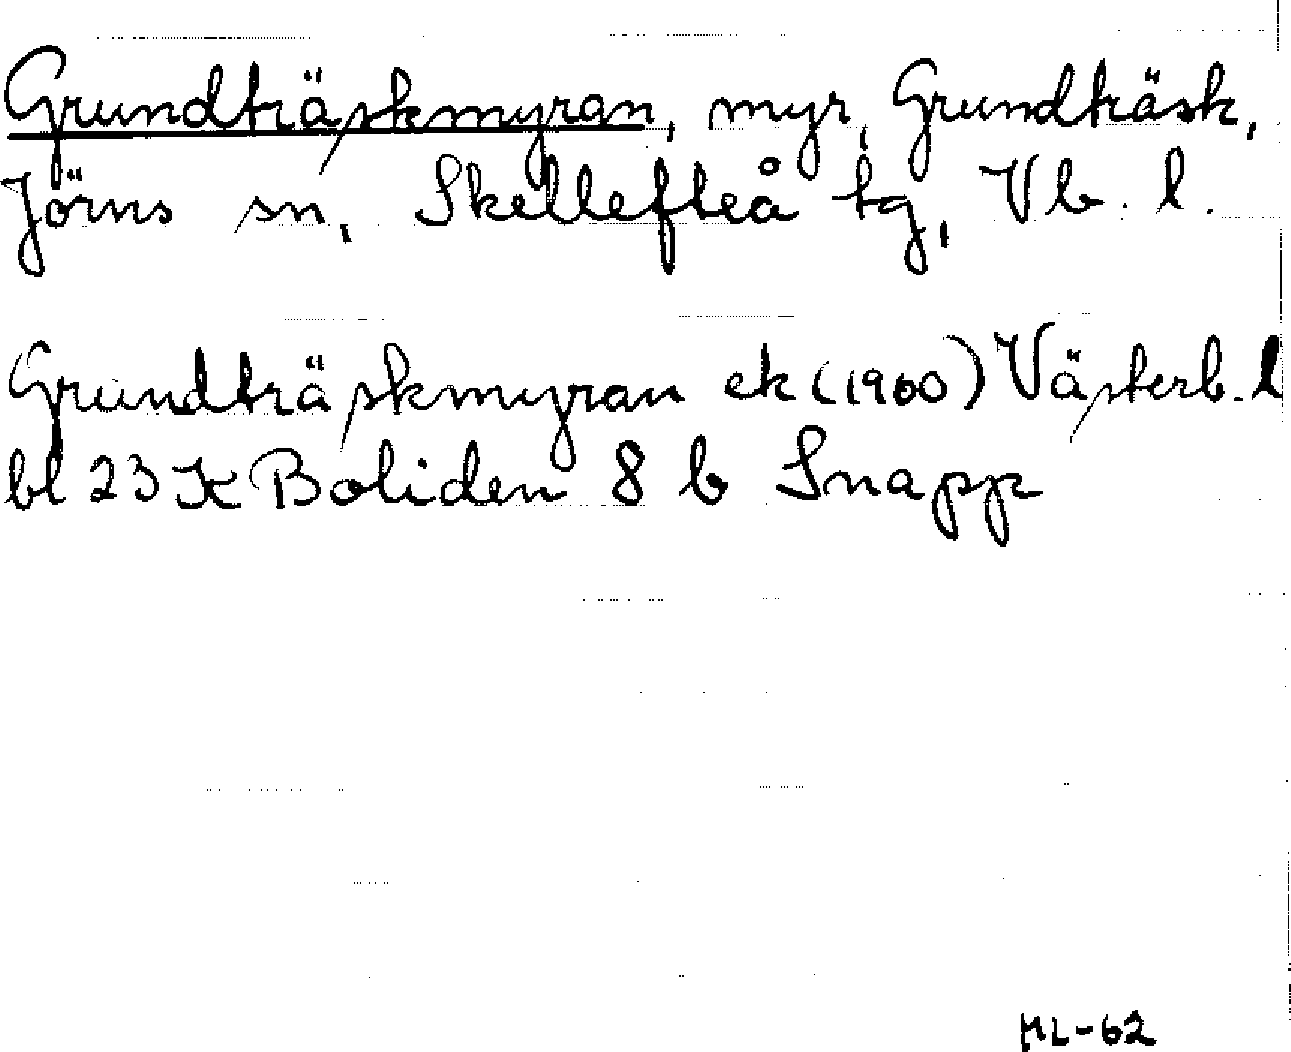 Grundträskmyran, myr, Grundträsk,
Jörns sn, Skellefteå tg, Vb. l.
Grundträskmyran ek (1960) Västerb. l
bl 23 K Boliden 8 b Snapp
ML-62